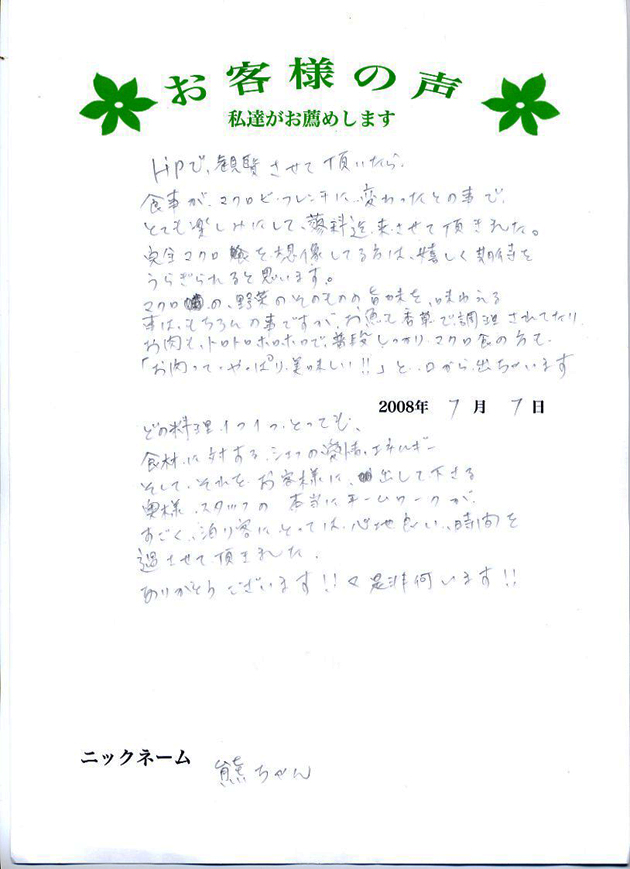 お客様の声
私達がお薦めします
HPで、観覧させて頂いたら、
食事が、マクロビ・フレンチに、変わったとの事で、
とても楽しみにして、蓼科迄、来させて頂きました。
完全マクロ食を想像してる方は、嬉しく期待を
うらぎられると思います。
マクロの、野菜のそのものの旨味を、味わえる
事は、もちろんの事ですが、お魚も香草で調理されてたり、
お肉も、トロトロホロホロで、普段しっかりマクロ食の方で、
「お肉って、やっぱり、美味しい!!」と、口から出ちゃいます
2008年 7月 7日
どの料理、1つ1つ、とっても、
食材に対する、シェフの愛情、エネルギー
そして、それを、お客様に、出して下さる
奥様、スタッフの 本当にチームワークが、
すごく、泊り客にとっては、心地良い、時間を
過させて頂きました。
ありがとうございます!! 又是非伺います!!
ニックネーム 熊ちゃん